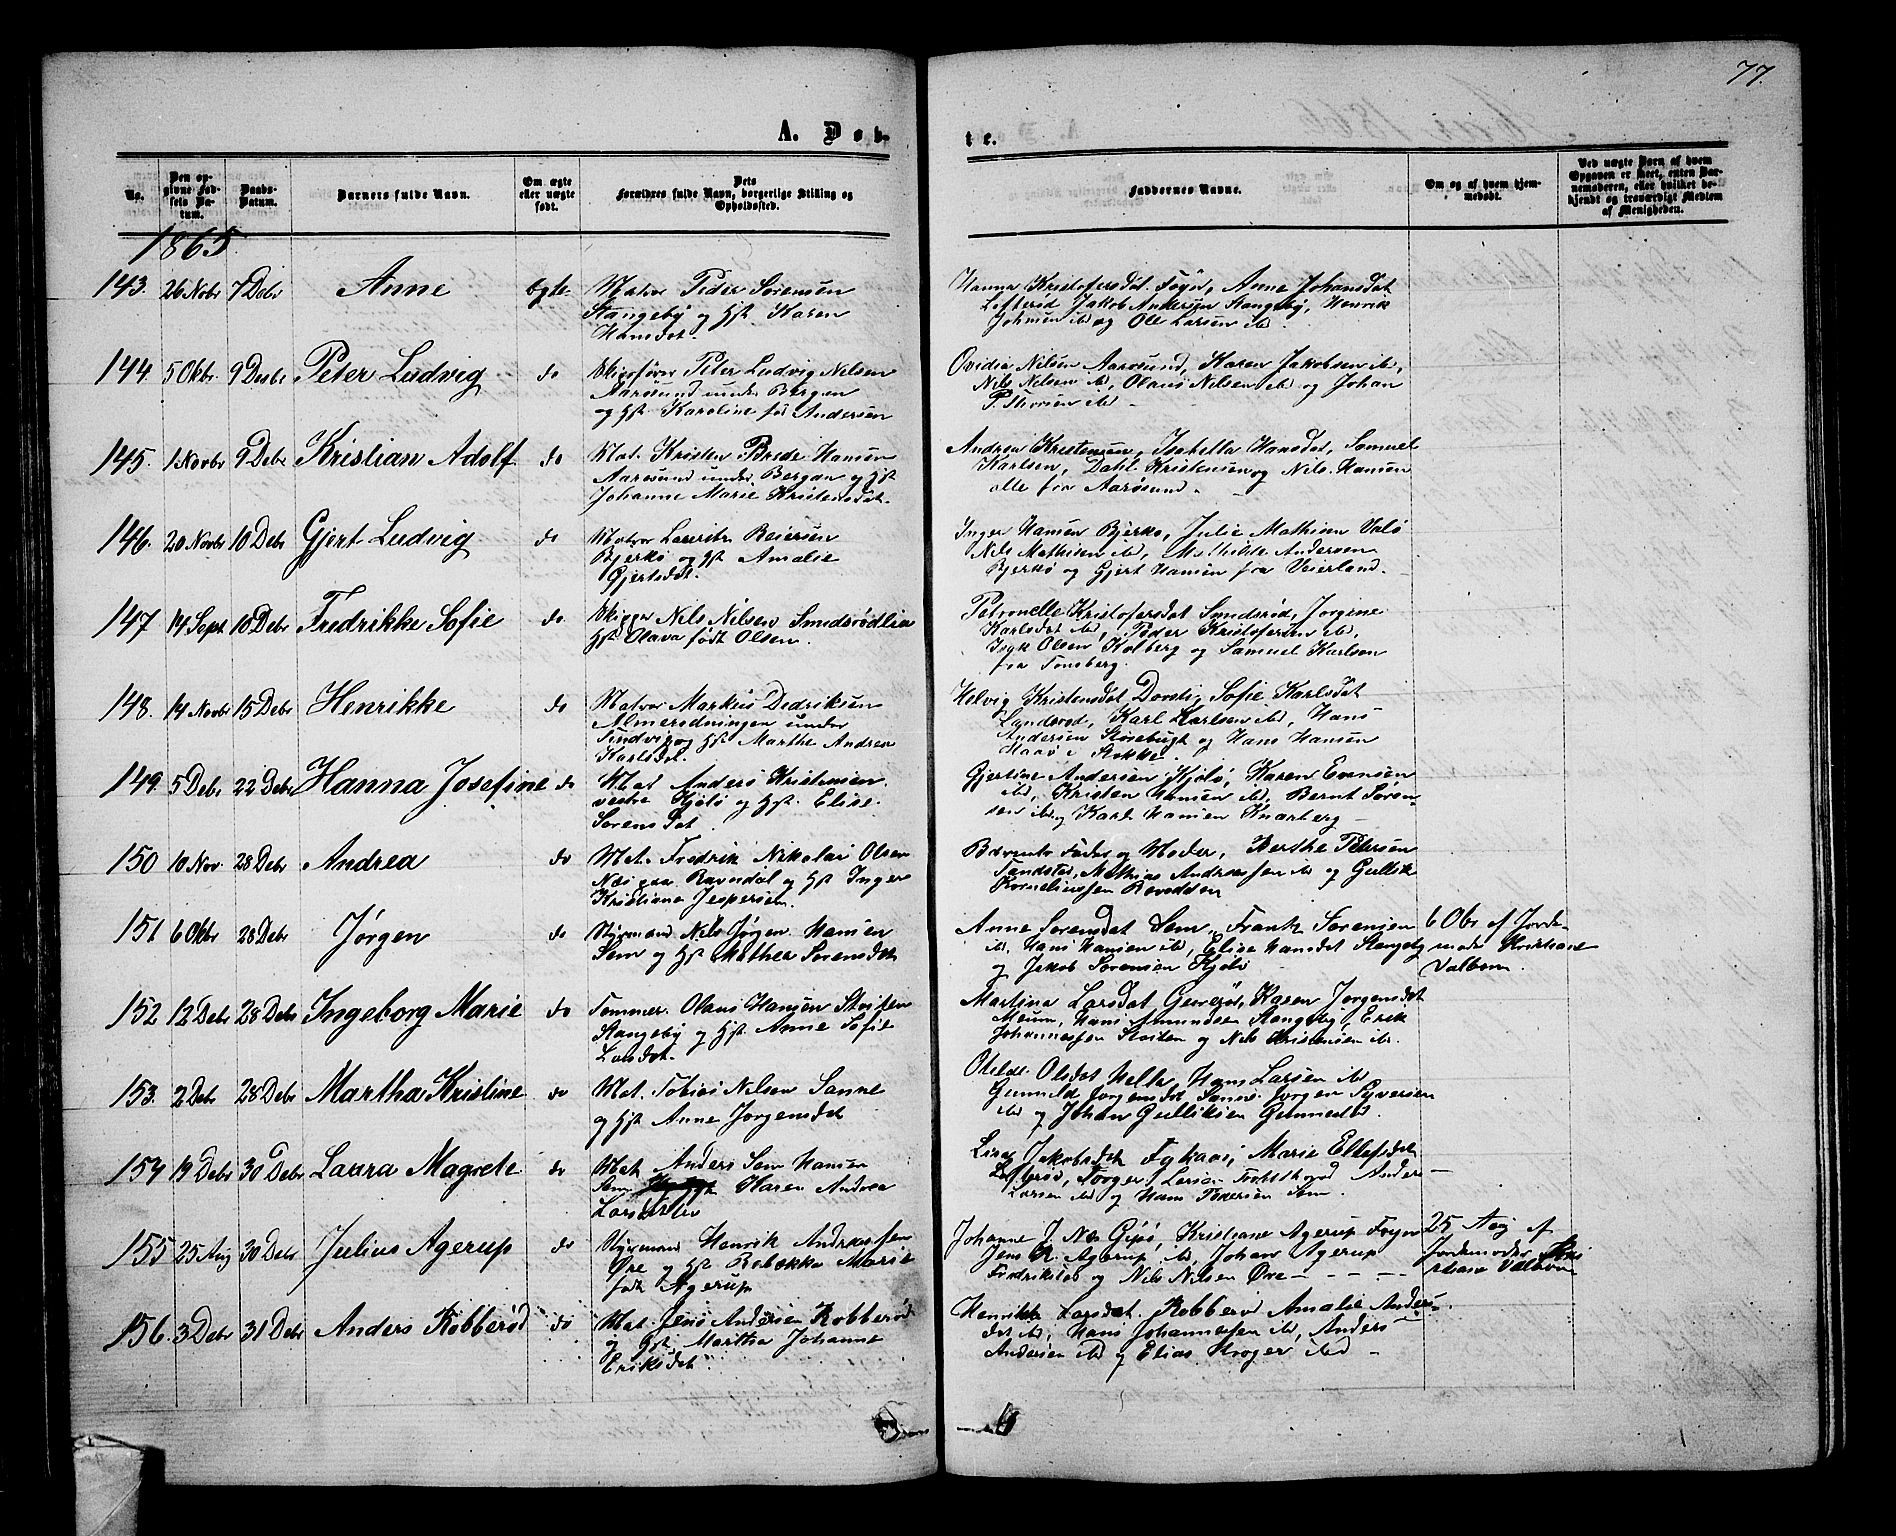 77.
A. Døb-
te.
No.
Den op-
givne Fød-
sels Da-
tum.
Daabs-
Datum.
Barnets fulde Navn.
Om ægte
eller uægte
født.
Dets
Forældres fulde Navn, borgerlige Stilling og
Opholdssted.
Faddernes Navne.
Om og af hvem hjem-
medøbt.
Ved uægte Børn af hvem
Opgaven er skeet, enten Bar-
nemoderen, eller hvilket be-
kjendt og troværdigt Medlem
af Menigheden.
1865.
143. 26 Novbr 7 Debr Anne Egte.
Matros Peder Sørensen
Stangeby og Hst. Karen
Hansdat.
Hanna Kristofersdat. Føyn, Anne Johansdat
Lofterød, Jakob Andersen Stangeby, Henrik
Johnsen ibd og Ole Larsen ibd.
144. 5 Okbr. 9 Desbr Peter Ludvig do
Skipsfører Peter Ludvig Nilsen
Aarøsund under Bergan
og Hst. Karoline fød Andersen
Ovidia Nilsen Aarøsund, Karen Jakobsen ibd,
Nils Nilsen ibd, Olaus Nilsen ibd og Johan
P. Thorsen ibd
145. 1 Novbr 9 Debr Kristian Adolf do
Mat. Kristen Brede Hansen
Aarøsund under Bergan og Hst
Johanne Marie Kristensdat.
Andrea Kristensen, Isabella Hansdat, Samuel
Karlsen, Dahl Kristensen og Nils Hansen
alle fra Aarøsund.
146. 20 Novbr 10 Debr Gjert Ludvig do
Matros Lauritz Reiersen
Bjerkø og Hst Amalie
Gjertsdat.
Inger Hansen Bjerkø, Julie Mathisen Valø
Nils Mathisen ibd, Mathilde Andersen
Bjerkø og Gjert Hansen fra Veierland.
147 14 Sept 10 Debr Fredrikke Sofie do
Skipper Nils Nilsen Smidsrødlia
Hst Olava født Olsen.
Petronelle Kristofersdat Smidsrød, Jorgine
Karlsdat ibd, Peder Kristofersen ibd,
Olsen Kolberg og Samuel Karlsen
fra Tønsberg.
148. 14 Novbr 15 Debr Henrikke do
Matros Markus Didriksen
Almerødningen under
og Hst Marthe Andrea
Karlsdat.
Helvig Kristensdat Sofie Karlsdat
Karl Karlsen ibd, Hans
Andersen Størebugt og Hans Hansen
Haaø i Stokke.
149. 5 Debr. 22 Debr Hanna Josefine do
Mat Anders Kristensen
vestre Kjøle og Hst. Elise
Sørensdat
Gjertine Andersen Kjøle, Karen Evensen
ibd, Kristen Hansen ibd, Bernt Søren-
sen ibd og Karl Hansen Knarberg
150 10 Nov. 28 Debr Andrea do
Mat. Fredrik Nikolai Olsen
Næs paa Ravndal og Hst Inger
Kristiane Jespersen.
Barnets Fader og Moder, Berthe Petersen
Mathias Andreassen ibd og Gullik
Korneliussen
151 6 Okbr 28 Debr Jørgen do
Styrmand Nils Jørgen Hansen
Sem og Hst Mathea Sørensdat
Anne Sørensdat Sem, Frantz Sørensen
ib. Hans Hansen ibd, Elise Hansdat Stangeby
og Jakob Sørensen Kjøle
6 Obr af Jorde-
moder Kristiane
Valbom.
152 12 Debr 28 Debr Ingeborg Marie do
Tømmer. Olaus Hansen
Stangeby og Hst. Anne Sofie
Larsdat.
Martina Larsdat Karen Jørgensdat
Meum, Hans Amundsen Stangeby, Erik
Johannessen og Nils Kristensen ibd.
153. 2 Debr 28 Debr Martha Kristine do
Mat. Tobias Nilsen Sanne
og Hst Anne Jørgensdat
Otilde Olsdat Hella, Hans Larsen ibd
Gunnild Jørgensdat Sanne Jørgen Syversen
ibd og Johan Gulliksen
154 19 Debr 30 Debr Laura Magrete do
Mat Anders Sem Hansen
Sem Karen Andrea
Lisa Jakobsdat Marie Ellefsdat
Torger Larsen Anders
Larsen ibd og Hans Pedersen Sem.
155 25 Aug 30 Debr Julius Agerup do
Styrmand Henrik Andreassen
Øre og Hst Rebekka Marie
født Agerup
Johanne J. Gipø, Kristiane Agerup Føyn
Jens R. Agerup ibd, Johan Agerup
Fredrikstad og Nils Nilsen Øre
25 Aug af
Jordemoder Kris-
tiane Valbom
156. 3 Debr 31 Debr Anders Robberød do
Mat. Jens Andersen Robberød
og Hst. Martha Johanne
Eriksdat.
Henrikke Larsdat Robberød Amalie Anders-
dat ibd, Hans Johannessen ibd, Anders
Andersen ibd og Elias Krøger ibd